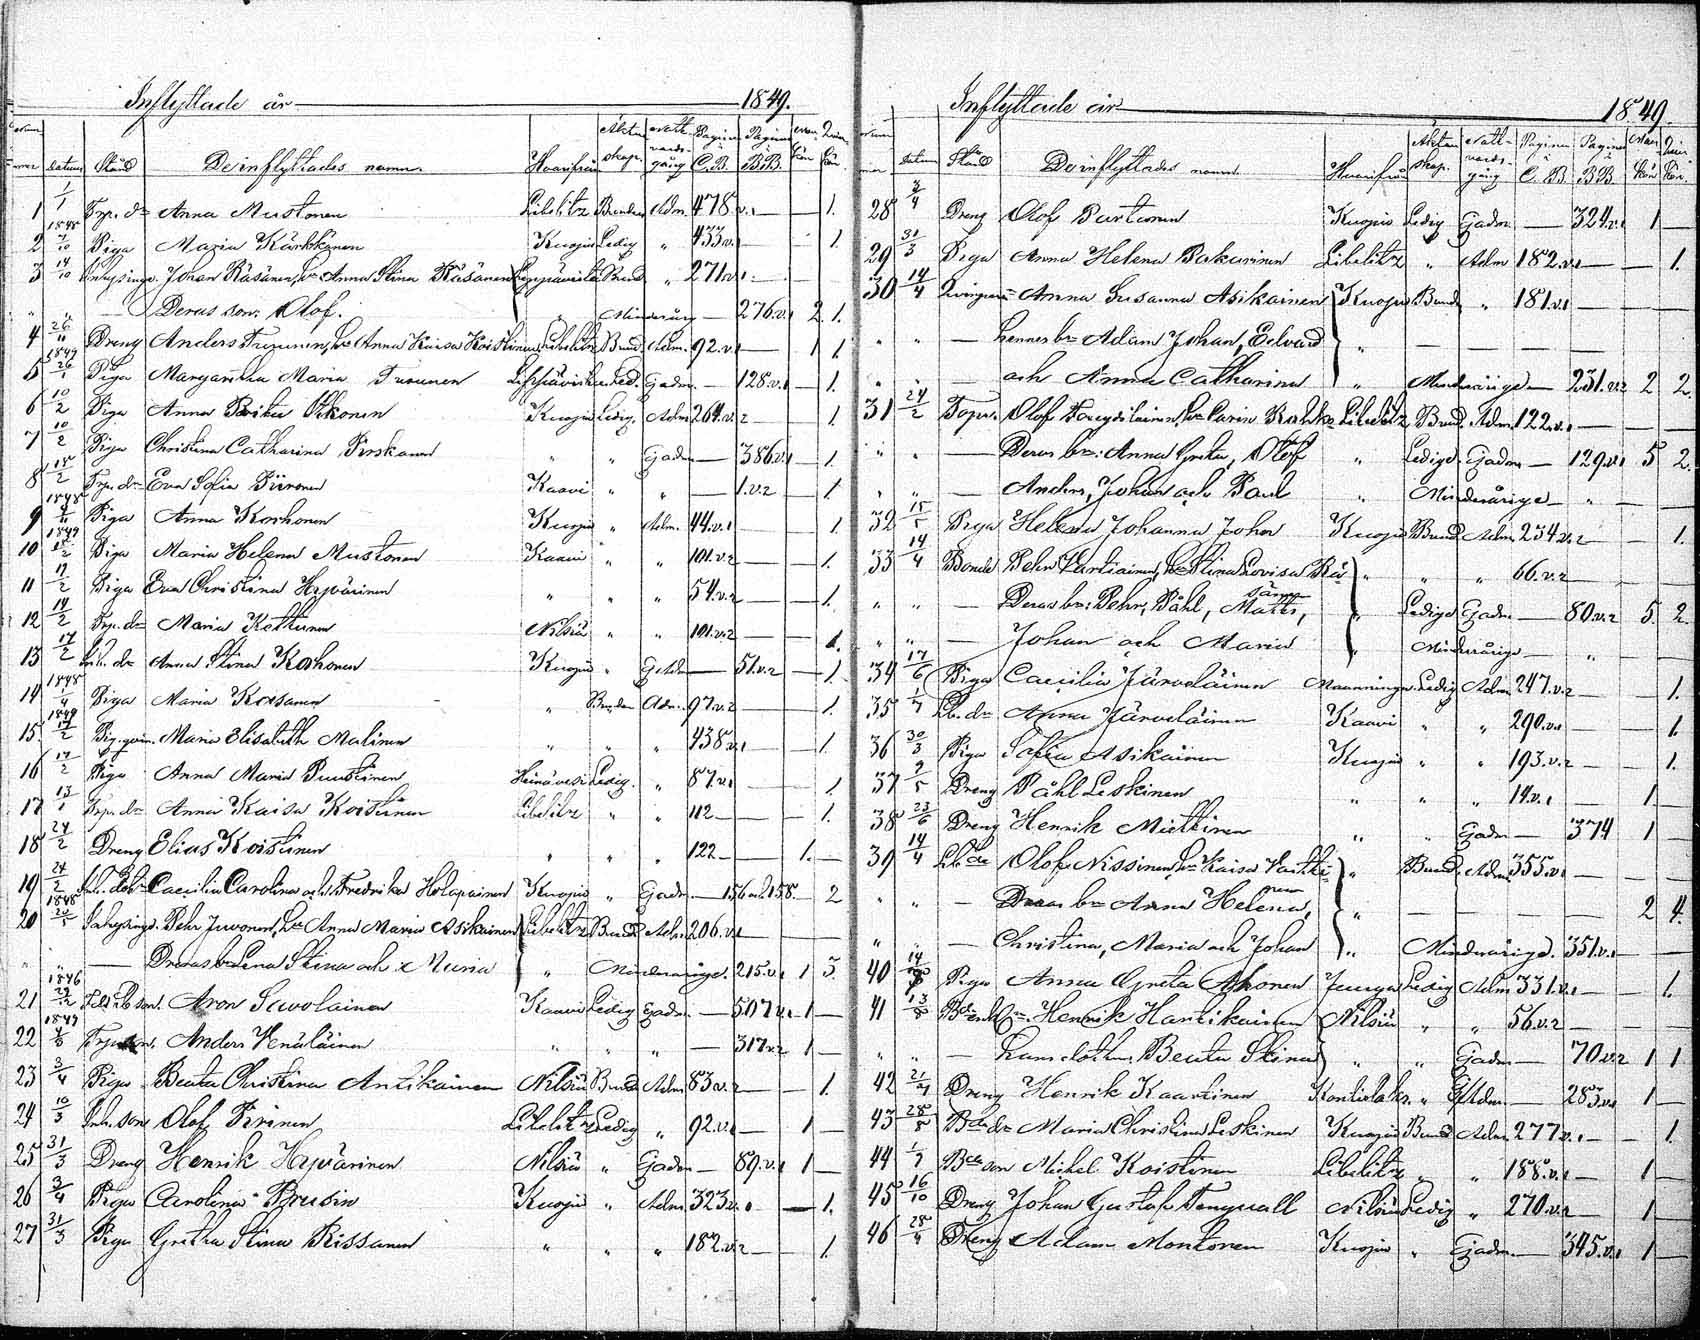 Inflyttade år 1849.
Datum Stånd De inflyttades namn. Hvarifrån Äkten skap. Natt vards gång Pagina i C.B. Pagina i B.B. Man kön Qvin kön.
1 1/1 Trp. dr Anna Mustonen Libelitz Bunden Adm. 478.v.1 — — 1.
1848
2 7/10 Piga Maria Kärkkänen Kuopio Ledig " 433.v.1 1.
3 14/10 Inhysinge Johan Räsänen, hu Anna Stina Räsänen Bund. " 271.v.1
" " — Deras son: Olof. Minderårig — 276.v.1 2. 1.
4 26/11 Dreng Anders Turunen, hu Anna Kaisa Koistinen Libelitz Bund. Adm. 92.v.1 1 1.
1849
5 26/1 Piga Margaretha Maria Turunen Led. Gadm. — 128.v.1 — 1.
6 10/2 Piga Anna Kuopio Ledig. Adm 264.v.2 1
7 10/2 Piga Christina Catharina " " Gadm — 386.v.1 — 1.
8 15/2 Trp. dr Eva Sofia Piironen Kaavi " " — 1.v.2 — 1.
1848
9 Piga Anna Korhonen Kuopio " Adm. 44.v.1 1
1849
10 Piga Maria Helena Mustonen Kaavi " " 101.v.2 — 1.
11 17/2 Piga Eva Christina Hyvärinen " " " 54.v.2 — 1.
12 14/2 Trp. dr Maria Kettunen Nilsiä " " 101.v.2 1.
13 17/2 Inh. dr Anna Stina Korhonen Kuopio " Gadm — 51.v.2 — 1
1848
14 1/4 Piga Maria Kossanen " Bunden Adm. 97.v.2 1.
1849
15. 17/2 Maria Elisabeth Malinen " " " 438.v.1 — 1.
16 17/2 Piga Anna Maria Puustinen Heinävesi Ledig. " 87.v.1 1
17 13/1 Trp. dr Anna Kaisa Koistinen Libelitz " " 112 — — 1.
18 24/2 Dreng Elias Koistinen " " " 122 — 1. —
19 24/2 Caecilia Carolina och Fredrika Holopainen Kuopio " Gadm. — 156 och 158. — 2
1848
20 20/5 Inhysinge. Pehr Juvonen, hu Anna Maria Asikainen Libelitz Bund. Adm. 206.v.1
" " — Deras br Lena Stina och Maria " Minderårige. 215.v.1 1 3.
1846
21 29/12 Aron Savolainen Kaavi Ledig Gadm. — 507.v.1 — 1 —
1849
22 Trp. son. Anders Venäläinen " " " — 317.v.2 1 —
23 3/4 Piga Beata Christina Antikainen Nilsiä Bund. Adm. 83.v.2 — 1.
24 10/3 Inh. son Olof Piironen Libelitz Ledig " 92.v.1 — 1 —
25 31/3 Dreng Henrik Hyvärinen Nilsiä " Gadm — 89.v.1 1 —
26 3/4 Piga Carolina Brusin Kuopio " Adm. 323.v. — 1.
27 31/3 Piga Gretha Stina Rissanen " " " 182.v.2 — 1.
Inflyttade år 1849.
Datum Stånd De inflyttades namn. Hvarifrån Äkten skap. Natt- vards- gång Pagina i C.B. Pagina i B.B. Man kön Qvin kön.
28 3/4 Dreng Olof Partanen Kuopio Ledig Gadm — 324.v.1 1 —
29 31/3 Piga Anna Helena Pakarinen Libelitz " Adm 182.v.1 — — 1.
30 14/4 Anna Susanna Asikainen Kuopio Bund. " 181.v.1 —
" " — hennes br Adam Johan, Edvard " — — —
" " och Anna Catharina " Minderårige — 231.v.2 2 2.
31 24/2 Olof hu Carin Libelitz Bund. Adm. 122.v.1 — — —
" " — Deras br: Anna Greta, Olof " Ledige Gadm — 129.v.1 5 2.
" " — Anders, Johan och Paul " Minderårige — " — —
32 15/5 Piga Helena Johanna John Kuopio Bund Adm 254.v.2 — — 1.
33 14/4 Bonde Pehr Vartiainen, hu Stina Lovisa Rä- " " " 66.v.2 —
sänen
" " — Deras br: Pehr, Påhl, Matts, " Ledige Gadm — 80.v.2 5. 2.
" " — Johan och Maria " Minderårige — " — —
34 17/6 Piga Caecilia Järveläinen Maaninga Ledig Adm 247.v.2 — 1.
35 1/7 Lb. dr Anna Järveläinen Kaavi " " 290.v.1 — 1.
36 30/3 Piga Sofia Asikäinen Kuopio " " 193.v.2 — 1.
37 9/5 Dreng Påhl Leskinen " " " 14.v.1 — 1
38 23/6 Dreng Henrik Miettinen " " Gadm — 374 1 —
39 14/4 Olof Nissinen, hu Kaisa " Bund. Adm 355.v.1 —
" " — Deras br Anna Helena, " — — — 2 4.
" " — Christina, Maria och Johan " Minderårige. 351.v.1 —
40 Piga Anna Greta Ahonen Ledig Adm 331.v.1 — 1.
41 13/8 Henrik Hartikainen Nilsiä " " 56.v.2 — —
" " — hans dotter Beata Stina " " Gadm — 70.v.2 1 1
42 Dreng Henrik Kaartinen Kontiolaks. " Gadm. — 283.v.1 1 —
43 28/5 Bde dr Maria Christina Leskinen Kuopio Bund Adm. 277.v.1 — — 1.
44 1/7 Bde son Michel Koistinen Libelitz " " 188.v.1 — 1
45 16/10 Dreng Johan Gustaf Tengvall Nilsiä Ledig " 270.v.2 — 1
46 Dreng Adam Montonen Kuopio " Gadm. — 345.v.1 1 —